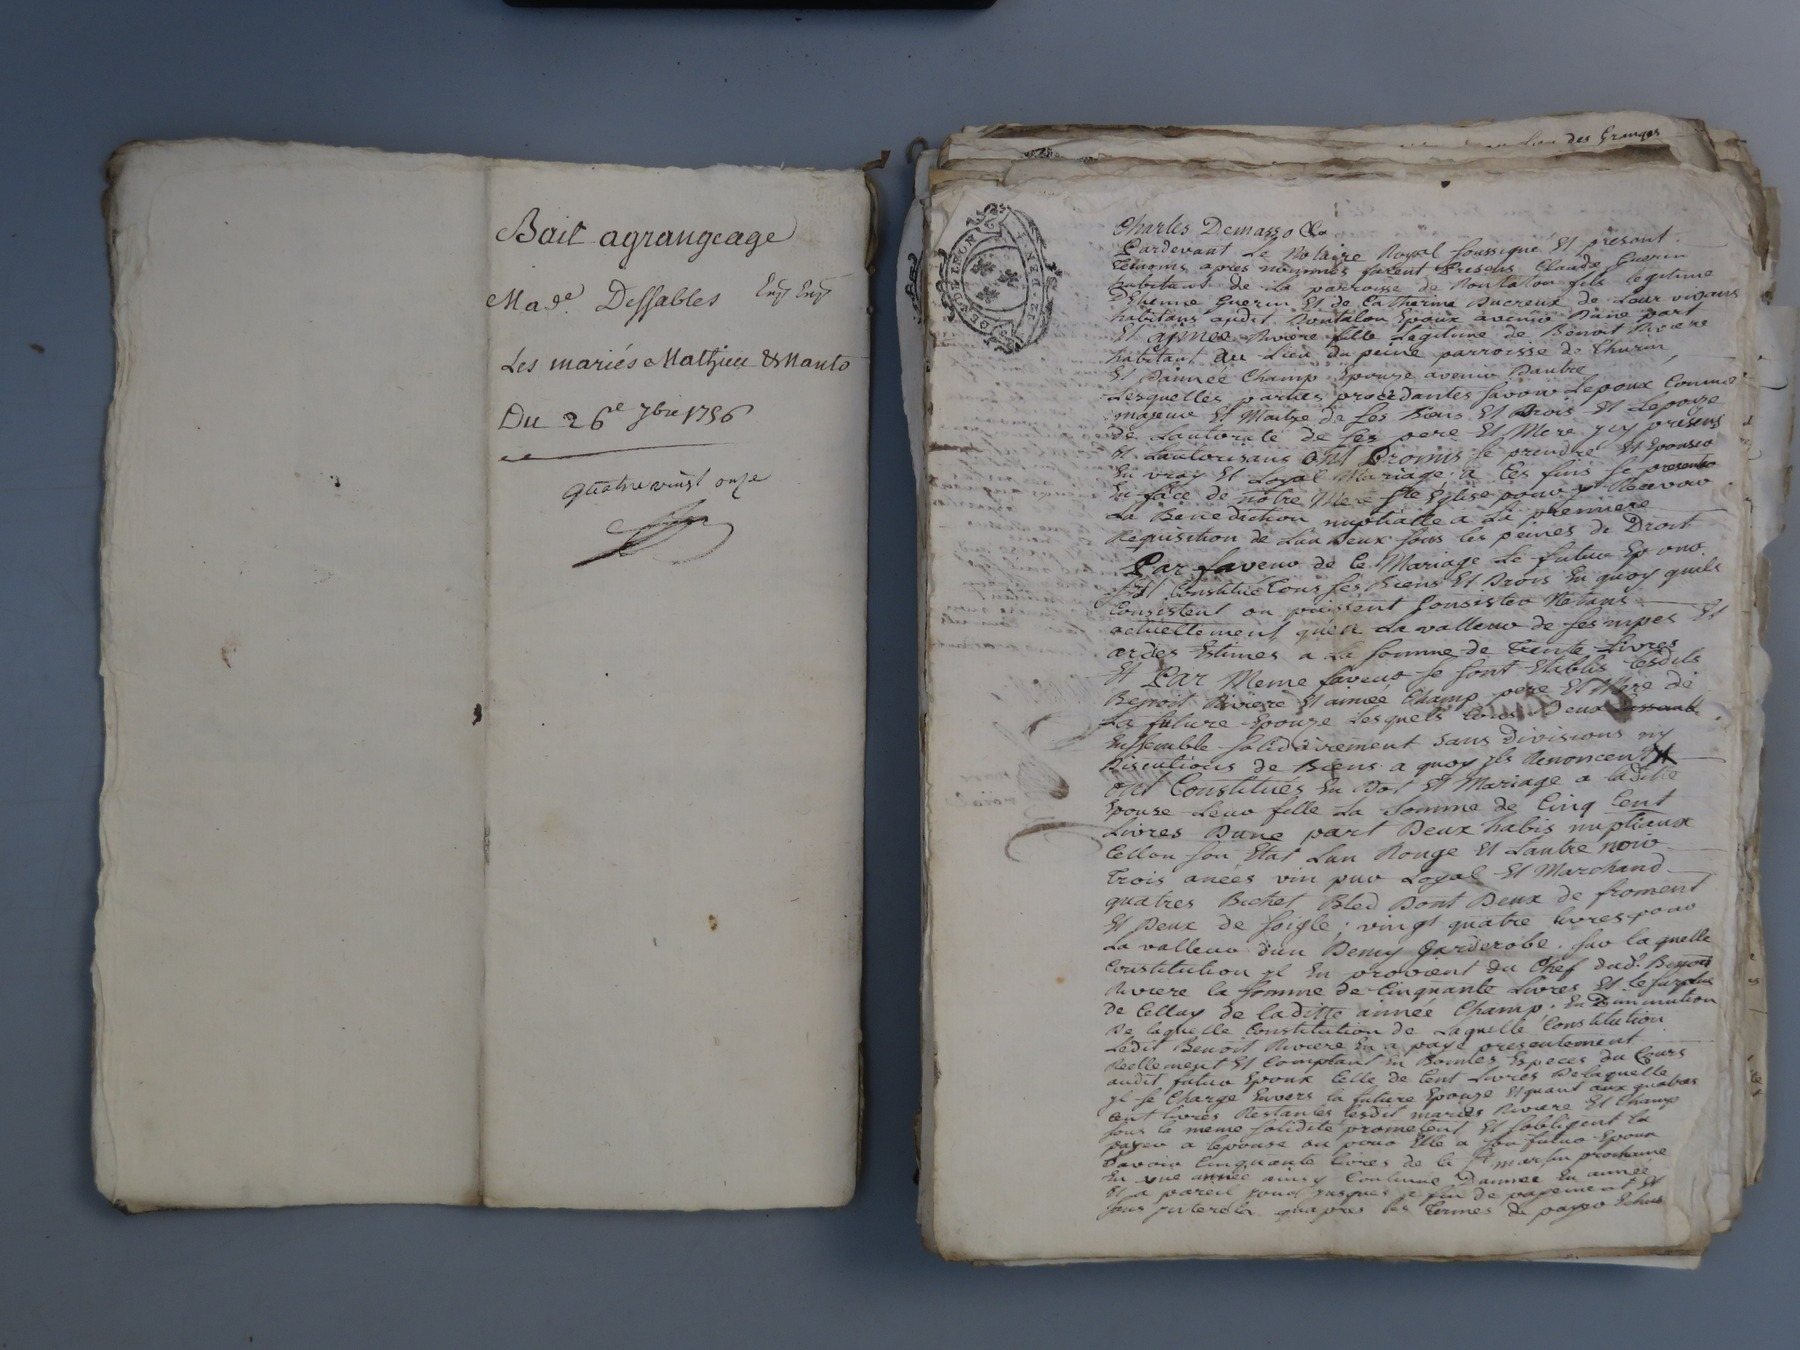 Bail agrangeage
Made. Dessables
Les mariés Mathieu & Nanto
Du 26e 7bre 1756
quatre vint onze
lieu des Granges
GEN. DE LION
Charles Demasso &a
Pardevant Le Notaire Royal soussigné Et presant
Temoins apres nommés furent Presens Claude Guerin
habitant de la parroisse de Montalon fils legitime
D'Etienne Guerin Et de Catherine Ducreux de Leur vivans
habitans audit Epoux avenir Dune part
Et Aimée Riviere fille Legitime de Benoit Riviere
habitant au Lieu du peine parroisse de Thurin
Et Daimée Champ Epouze avenir Dautre
Lesquelles parties procedantes savoir Lepoux Comme
majeur Et Maitre de ses Biens Et Drois Et Lepouze
de Lautorité de ses pere Et Mere y cy presens
Et Lautorisans ont Promis se prendre Et Epouser
En vray Et Loyal Mariage, a ces fins se presenter
En face de nôtre Mere Ste Eglise pour y Recevoir
La Benediction nuptialle a La premiere
Requisition de Lun Deux sous les peines de Droit
Par faveur de ce Mariage Le futur Ep oux
sest Constitué tous ses Biens Et Drois En quoy quils
Consistent ou puissent Consister Netans
actuellement quen La valleur de ses nipes Et
ardes Estimés a La somme de Trente Livres
Et Par Meme faveur se sont Etablis lesdits
Benoit Riviere Et aimée Champ pere Et Mere de
La future Epouze Lesquels tous Deux
Ensemble solidairement sans divisions ny
Discutions de Biens a quoy ils Renoncent
ont Constitués En Dot Et Mariage a ladite
Epouse Leur fille La somme de Cinq Cent
Livres Dune part Deux habis nuptiaux
Cellon son Etat Lun Rouge Et Lautre noir
Trois anées vin pur Loyal Et Marchand
quatres Bichet Bled Dont Deux de froment
Et Deux de soigle; vingt quatre livres pour
La valleur dun Demy Garderobe. sur la quelle
Constitution il En provient du Chef dud. Benoit
Riviere la somme de Cinquante Livres Et le surplus
de Celluy de laditte aimée Champ. En Diminution
De laquelle Constitution de Laquelle Constitution
Ledit Benoit Riviere En a payé presentement
Reellement Et Comptant En Bonnes Especes du Cours
audit futur Epoux Celle de Cent Livres Delaquelle
yl se Charge Envers la future Epouze Et quant aux quatres
cent livres Restantes lesdit mariés Riviere Et Champ
sous la meme solidité prometent Et sobligent la
payer a lepouse ou pour Elle a son futur Epoux
savoir Cinquante livres de la St martin prochaine
En une année ainsy Continuer Dannée En année
Et a pareil jour jusques a fin de payement Et
sans interet quapres les Termes de payer Echus